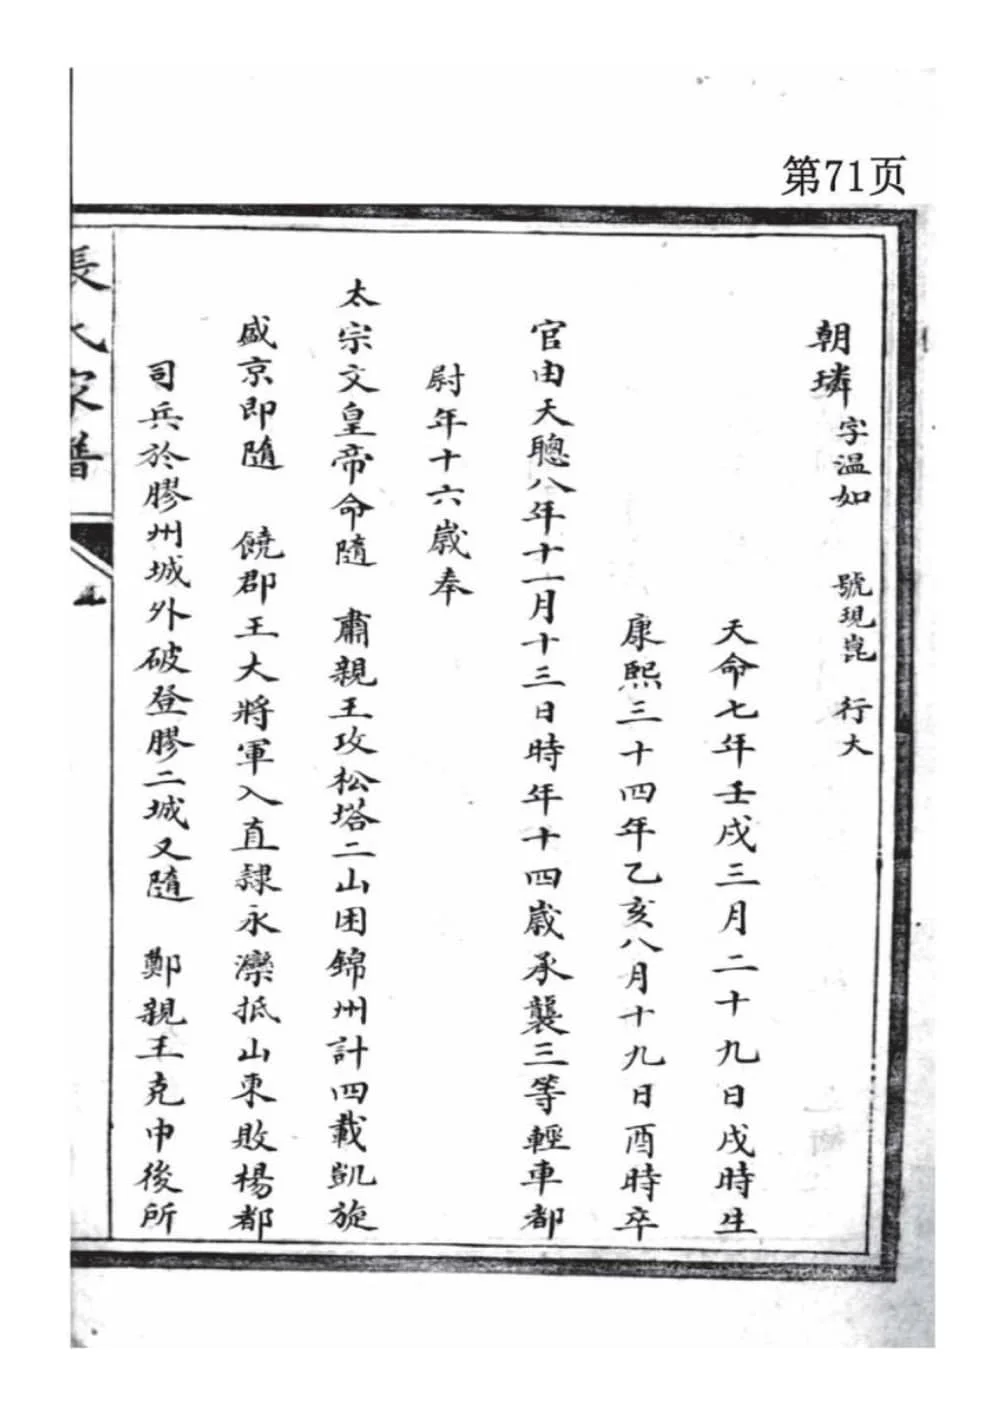 第71页
朝璘 字温如 號現崑 行大
天命七年壬戌三月二十九日戌時生
康熙三十四年乙亥八月十九日酉時卒
官由天聰八年十一月十三日時年十四歲承襲三等輕車都
尉年十六歲奉
太宗文皇帝命隨 肅親王攻松塔二山困錦州計四載凱旋
盛京即隨 饒郡王大將軍入直隸永灤抵山東敗楊都
司兵於膠州城外破登膠二城又隨 鄭親王克中後所
張氏家譜